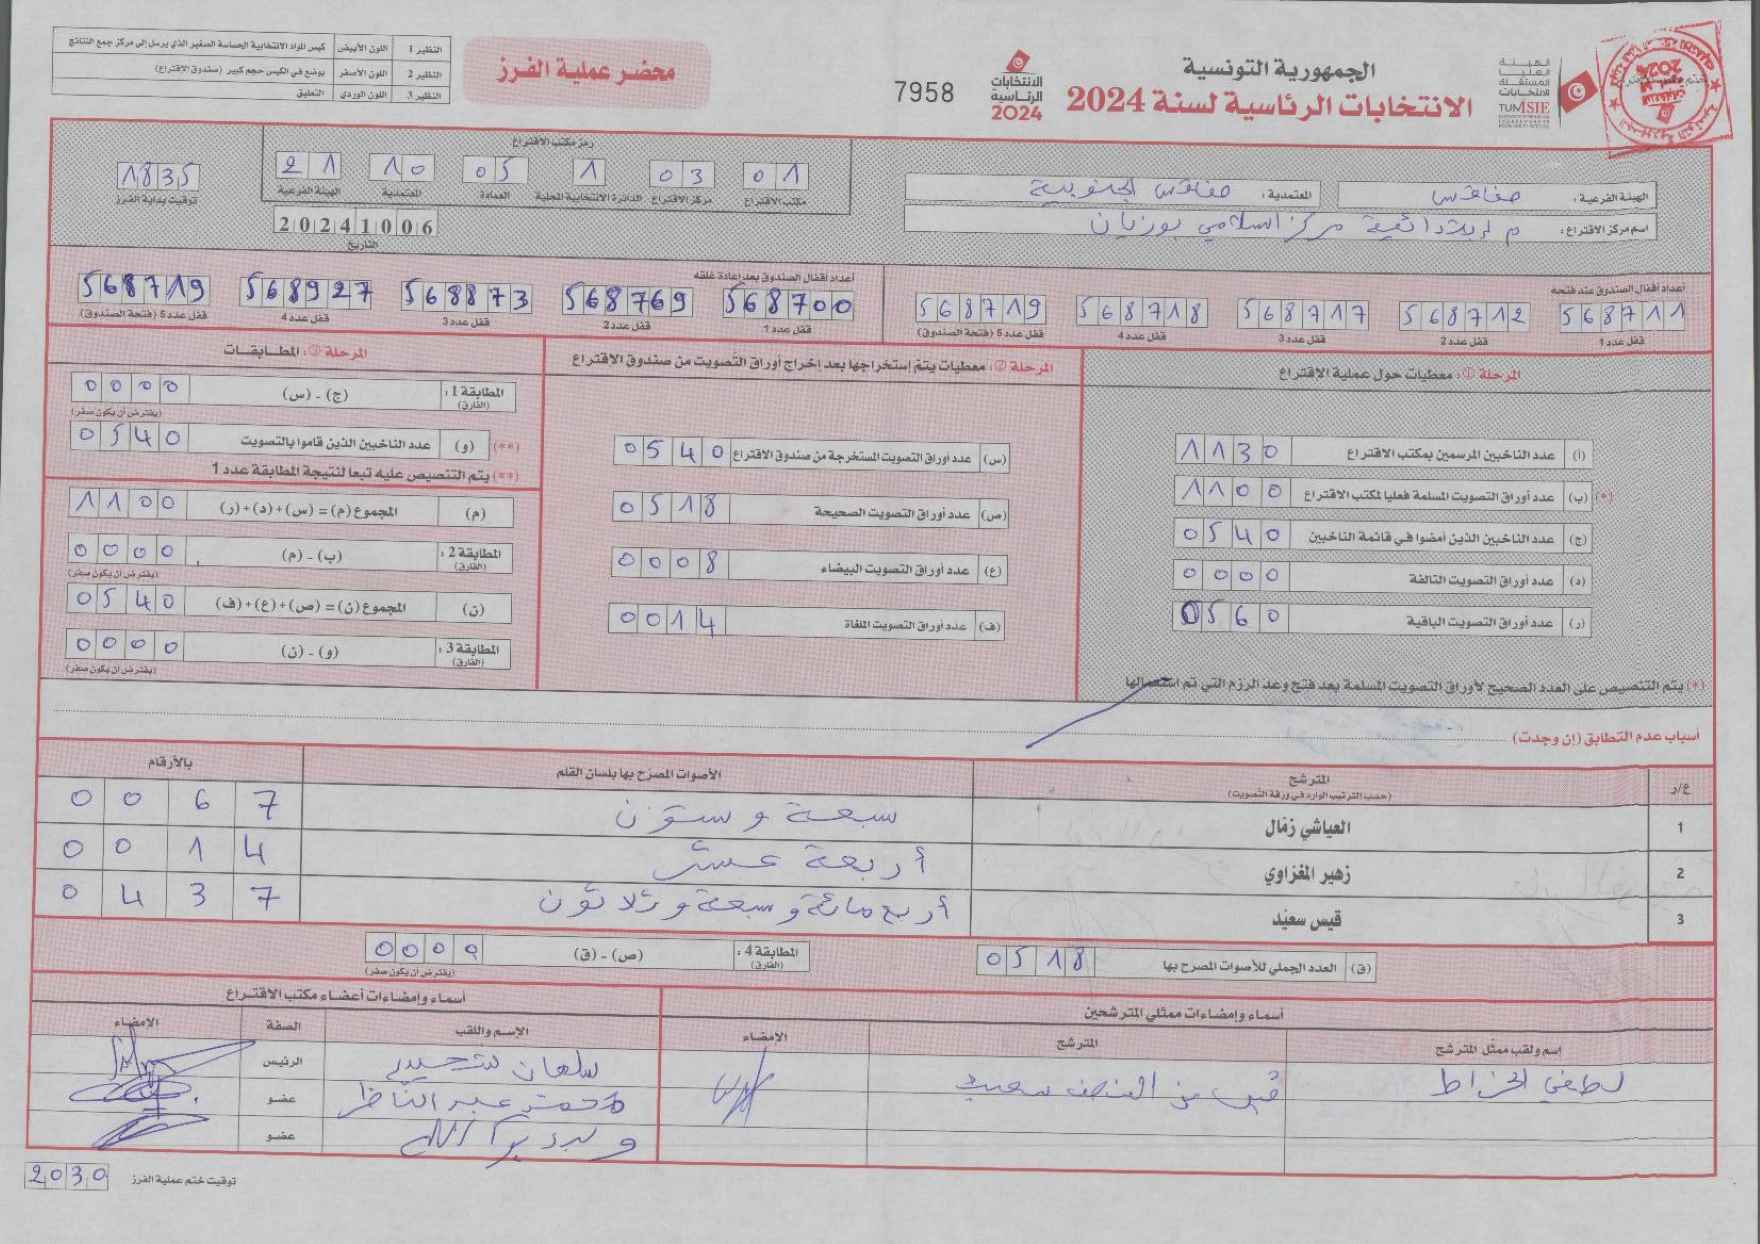 الجمهورية التونسية
الانتخابات الرئاسية لسنة 2024
الهيئة العليا المستقلة للانتخابات
TUNISIE
الانتخابات الرئاسية 2024
7958
محضر عملية الفرز
النظير 1 اللون الأبيض كيس المواد الانتخابية الحساسة الصغير الذي يرسل إلى مركز جمع النتائج
النظير 2 اللون الأصفر يوضع في الكيس حجم كبير (صندوق الاقتراع)
النظير 3 اللون الوردي التعليق
الهيئة الفرعية: صفاقس
المعتمدية: صفاقس الجنوبية
اسم مركز الاقتراع: مركز السلامي بوزيان
رمز مكتب الاقتراع
01 03 1 05 10 21
مكتب الاقتراع مركز الاقتراع الدائرة الانتخابية المحلية العمادة المعتمدية الهيئة الفرعية
20241006
التاريخ
1835
توقيت بداية الفرز
أعداد أقفال الصندوق عند فتحه
568711 568712 568717 568718 568719
قفل عدد 1 قفل عدد 2 قفل عدد 3 قفل عدد 4 قفل عدد 5 (فتحة الصندوق)
أعداد أقفال الصندوق بعد إعادة غلقه
568700 568769 568873 568927 568719
قفل عدد 1 قفل عدد 2 قفل عدد 3 قفل عدد 4 قفل عدد 5 (فتحة الصندوق)
المرحلة 1: معطيات حول عملية الاقتراع
(أ) عدد الناخبين المرسمين بمكتب الاقتراع 1130
(*) (ب) عدد أوراق التصويت المسلمة فعليا لمكتب الاقتراع 1100
(ج) عدد الناخبين الذين أمضوا في قائمة الناخبين 0540
(د) عدد أوراق التصويت التالفة 0000
(ر) عدد أوراق التصويت الباقية 0560
(*) يتم التنصيص على العدد الصحيح لأوراق التصويت المسلمة بعد فتح وعد الرزم التي تم استعمالها
المرحلة 2: معطيات يتم إستخراجها بعد إخراج أوراق التصويت من صندوق الاقتراع
(س) عدد أوراق التصويت المستخرجة من صندوق الاقتراع 0540
(ص) عدد أوراق التصويت الصحيحة 0518
(ع) عدد أوراق التصويت البيضاء 0008
(ف) عدد أوراق التصويت الملغاة 0014
المرحلة 3: المطابقات
المطابقة 1: (الفارق) (ج) - (س) 0000
(يفترض أن يكون صفر)
(**) (و) عدد الناخبين الذين قاموا بالتصويت 0540
(**) يتم التنصيص عليه تبعا لنتيجة المطابقة عدد 1
(م) المجموع (م) = (س)+(د)+(ر) 1100
المطابقة 2: (الفارق) (ب) - (م) 0000
(يفترض أن يكون صفر)
(ن) المجموع (ن) = (ص)+(ع)+(ف) 0540
المطابقة 3: (الفارق) (و) - (ن) 0000
(يفترض أن يكون صفر)
أسباب عدم التطابق (إن وجدت)
ع/ر المترشح (حسب الترتيب الوارد في ورقة التصويت) الأصوات المصرح بها بلسان القلم بالأرقام
1 العياشي زمّال سبعة وستون 0067
2 زهير المغزاوي أربعة عشر 0014
3 قيس سعيّد أربع مائة وسبعة وثلاثون 0437
(ق) العدد الجملي للأصوات المصرح بها 0518
المطابقة 4: (الفارق) (ص) - (ق) 0000
(يفترض أن يكون صفر)
أسماء وإمضاءات ممثلي المترشحين
اسم ولقب ممثل المترشح المترشح الامضاء
لطفي الخراط قيس بن المنصف سعيد
أسماء وإمضاءات أعضاء مكتب الاقتراع
الإسم واللقب الصفة الامضاء
الرئيس
عضو
عضو
توقيت ختم عملية الفرز 2030